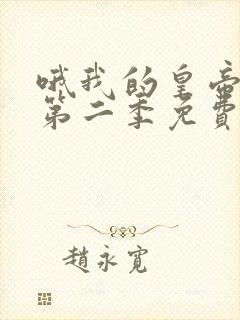 哦我的皇帝
第二季免費
趙永寬